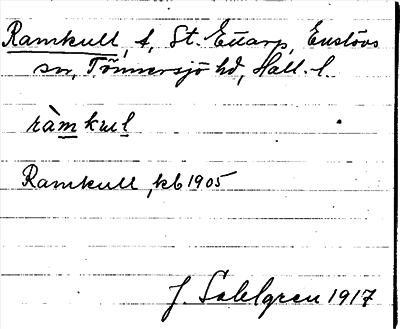 Ramkull, t, St. Ettarp, Enslövs
sn, Tönnersjö hd, Hall. l.
ràmkul
Ramkull, kb 1905
J. Sahlgren 1917